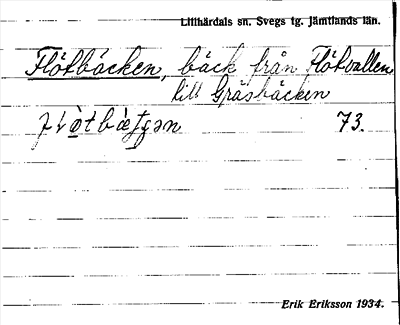 Lillhärdals sn. Svegs tg. Jämtlands län.
Flötbäcken, bäck från Flötvallen
till Gräsbäcken
73.
Erik Eriksson 1934.